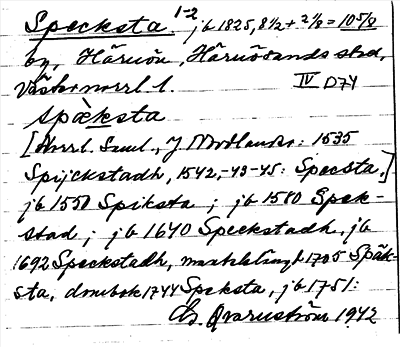 Specksta. 1-2 jb 1825, 8 1/2 + 2 1/8 = 10 5/8
by, Härnön, Härnösands stad,
Västernorrl. l. IV D74
späksta
[Norrl. Saml., J Nordlander: 1535
Spijckstadh, 1542,-43-45: Specsta.]
jb 1550 Spiksta; jb 1580 Spek-
stad; jb 1640 Speckstadh, jb
1692 Speckstadh, mantalslängd 1705 Späk-
sta, dombok 1744 Speksta, jb 1751:
Qvarnström 1942